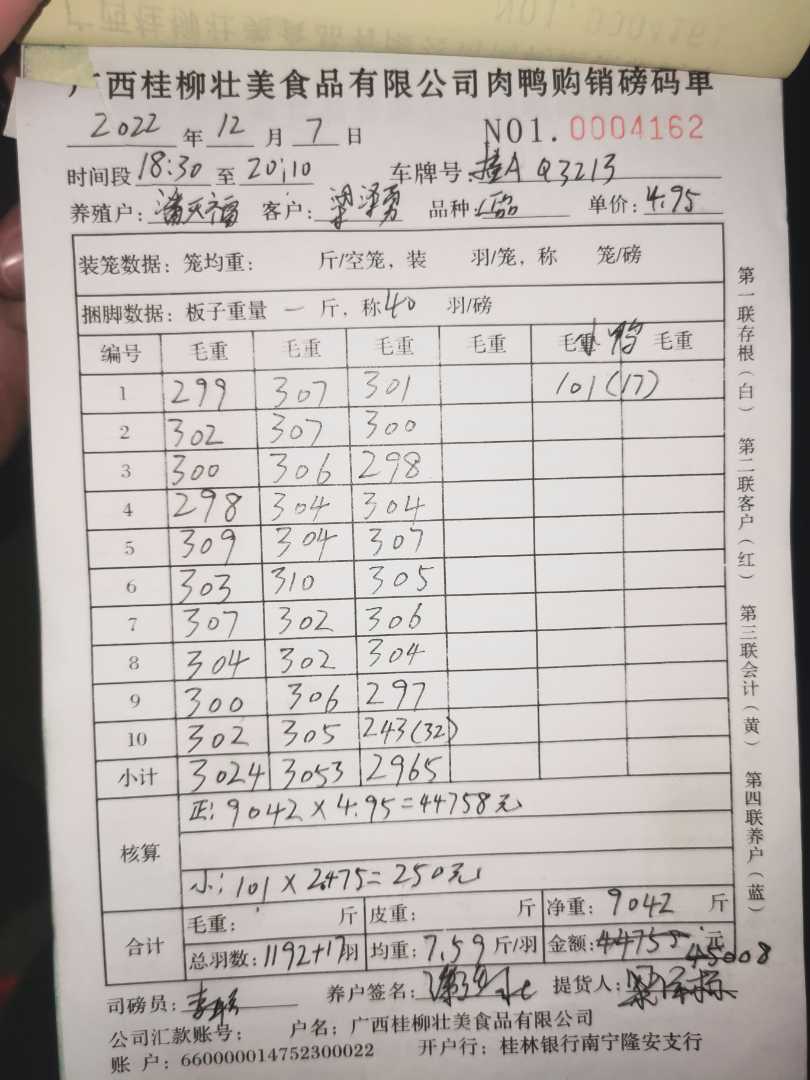 广西桂柳壮美食品有限公司肉鸭购销磅码单
2022 年 12 月 7 日 NO1. 0004162
时间段 18:30 至 20:10 车牌号: A Q3213
养殖户: 潘天福 客户: 梁泽勇 品种: 单价: 4.95
装笼数据: 笼均重: 斤/空笼, 装 羽/笼, 称 笼/磅
捆脚数据: 板子重量 一 斤, 称 40 羽/磅
编号 毛重 毛重 毛重 毛重 毛重 小鸭 毛重
1 299 307 301 101(17)
2 302 307 300
3 300 306 298
4 298 304 304
5 309 304 307
6 303 310 305
7 307 302 306
8 304 302 304
9 300 306 297
10 302 305 243(32)
小计 3024 3053 2965
核算
正: 9042 × 4.95 = 44758元
小: 101 × 2.475 = 250元
合计
毛重: 斤 皮重: 斤 净重: 9042 斤
总羽数: 1192+17羽 均重: 7.59 斤/羽 金额: 44758 元
45008
司磅员: 养户签名: 提货人:
公司汇款账号: 户名: 广西桂柳壮美食品有限公司
账 户: 660000014752300022 开户行: 桂林银行南宁隆安支行
第一联存根(白) 第二联客户(红) 第三联会计(黄) 第四联养户(蓝)